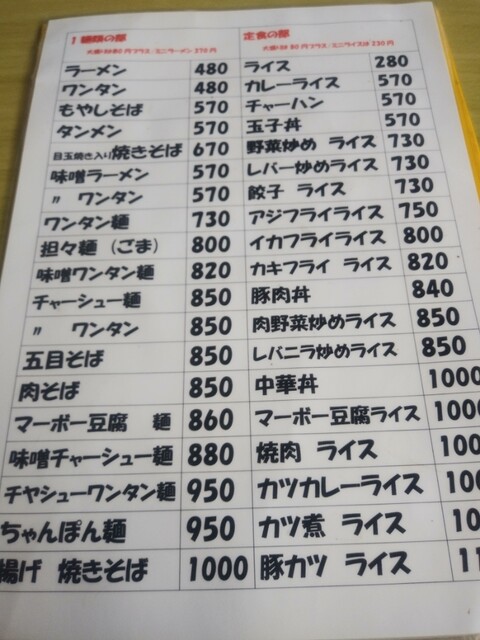 1 麺類の部
大盛りは80円プラス/ミニラーメン370円
ラーメン 480
ワンタン 480
もやしそば 570
タンメン 570
目玉焼き入り焼きそば 670
味噌ラーメン 570
〃 ワンタン 570
ワンタン麺 730
担々麺（ごま） 800
味噌ワンタン麺 820
チャーシュー麺 850
〃 ワンタン 850
五目そば 850
肉そば 850
マーボー豆腐 麺 860
味噌チャーシュー麺 880
チヤシューワンタン麺 950
ちゃんぽん麺 950
揚げ 焼きそば 1000
定食の部
大盛りは80円プラス/ミニライスは230円
ライス 280
カレーライス 570
チャーハン 570
玉子丼 570
野菜炒め ライス 730
レバー炒めライス 730
餃子 ライス 730
アジフライライス 750
イカフライライス 800
カキフライ ライス 820
豚肉丼 840
肉野菜炒めライス 850
レバニラ炒めライス 850
中華丼 1000
マーボー豆腐ライス 1000
焼肉 ライス 100
カツカレーライス 100
カツ煮 ライス 10
豚カツ ライス 11